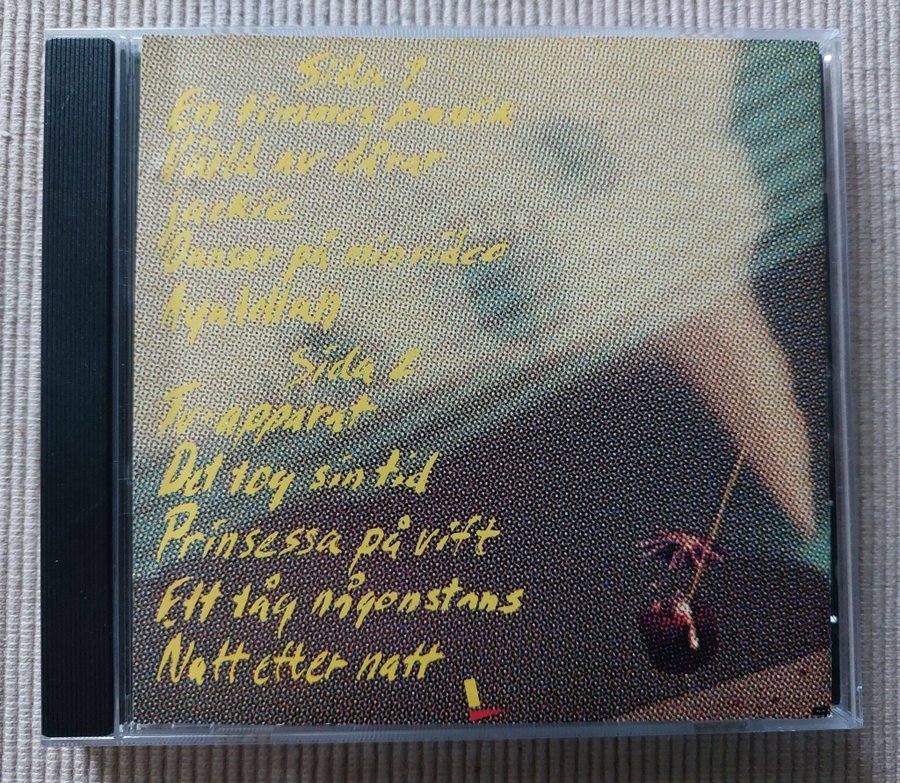 Sida 1
En timmes panik
Värld av dårar
jackie
Dansar på min video
Ayatollah
Sida 2
Tv-apparat
Det tog sin tid
Prinsessa på vift
Ett tåg någonstans
Natt efter natt